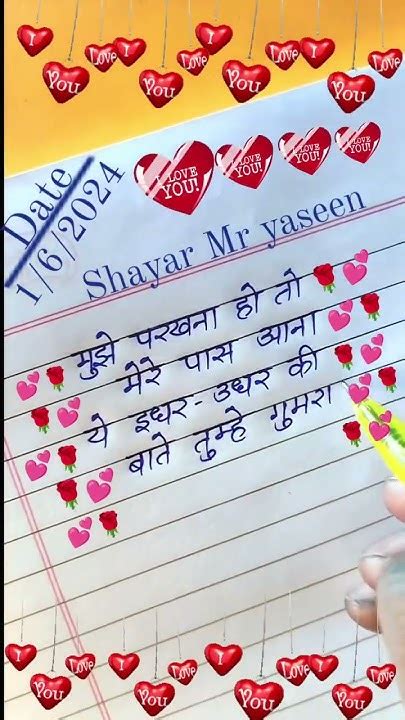 I You Love You Love I You Love I You Love
I LOVE YOU! I LOVE YOU! I LOVE YOU! I LOVE YOU!
Date
1/6/2024
Shayar Mr yaseen
मुझे परखना हो तो
मेरे पास आना
ये इधर-उधर की
बाते तुम्हे गुमरा
I You Love I You Love I You Love I You Love